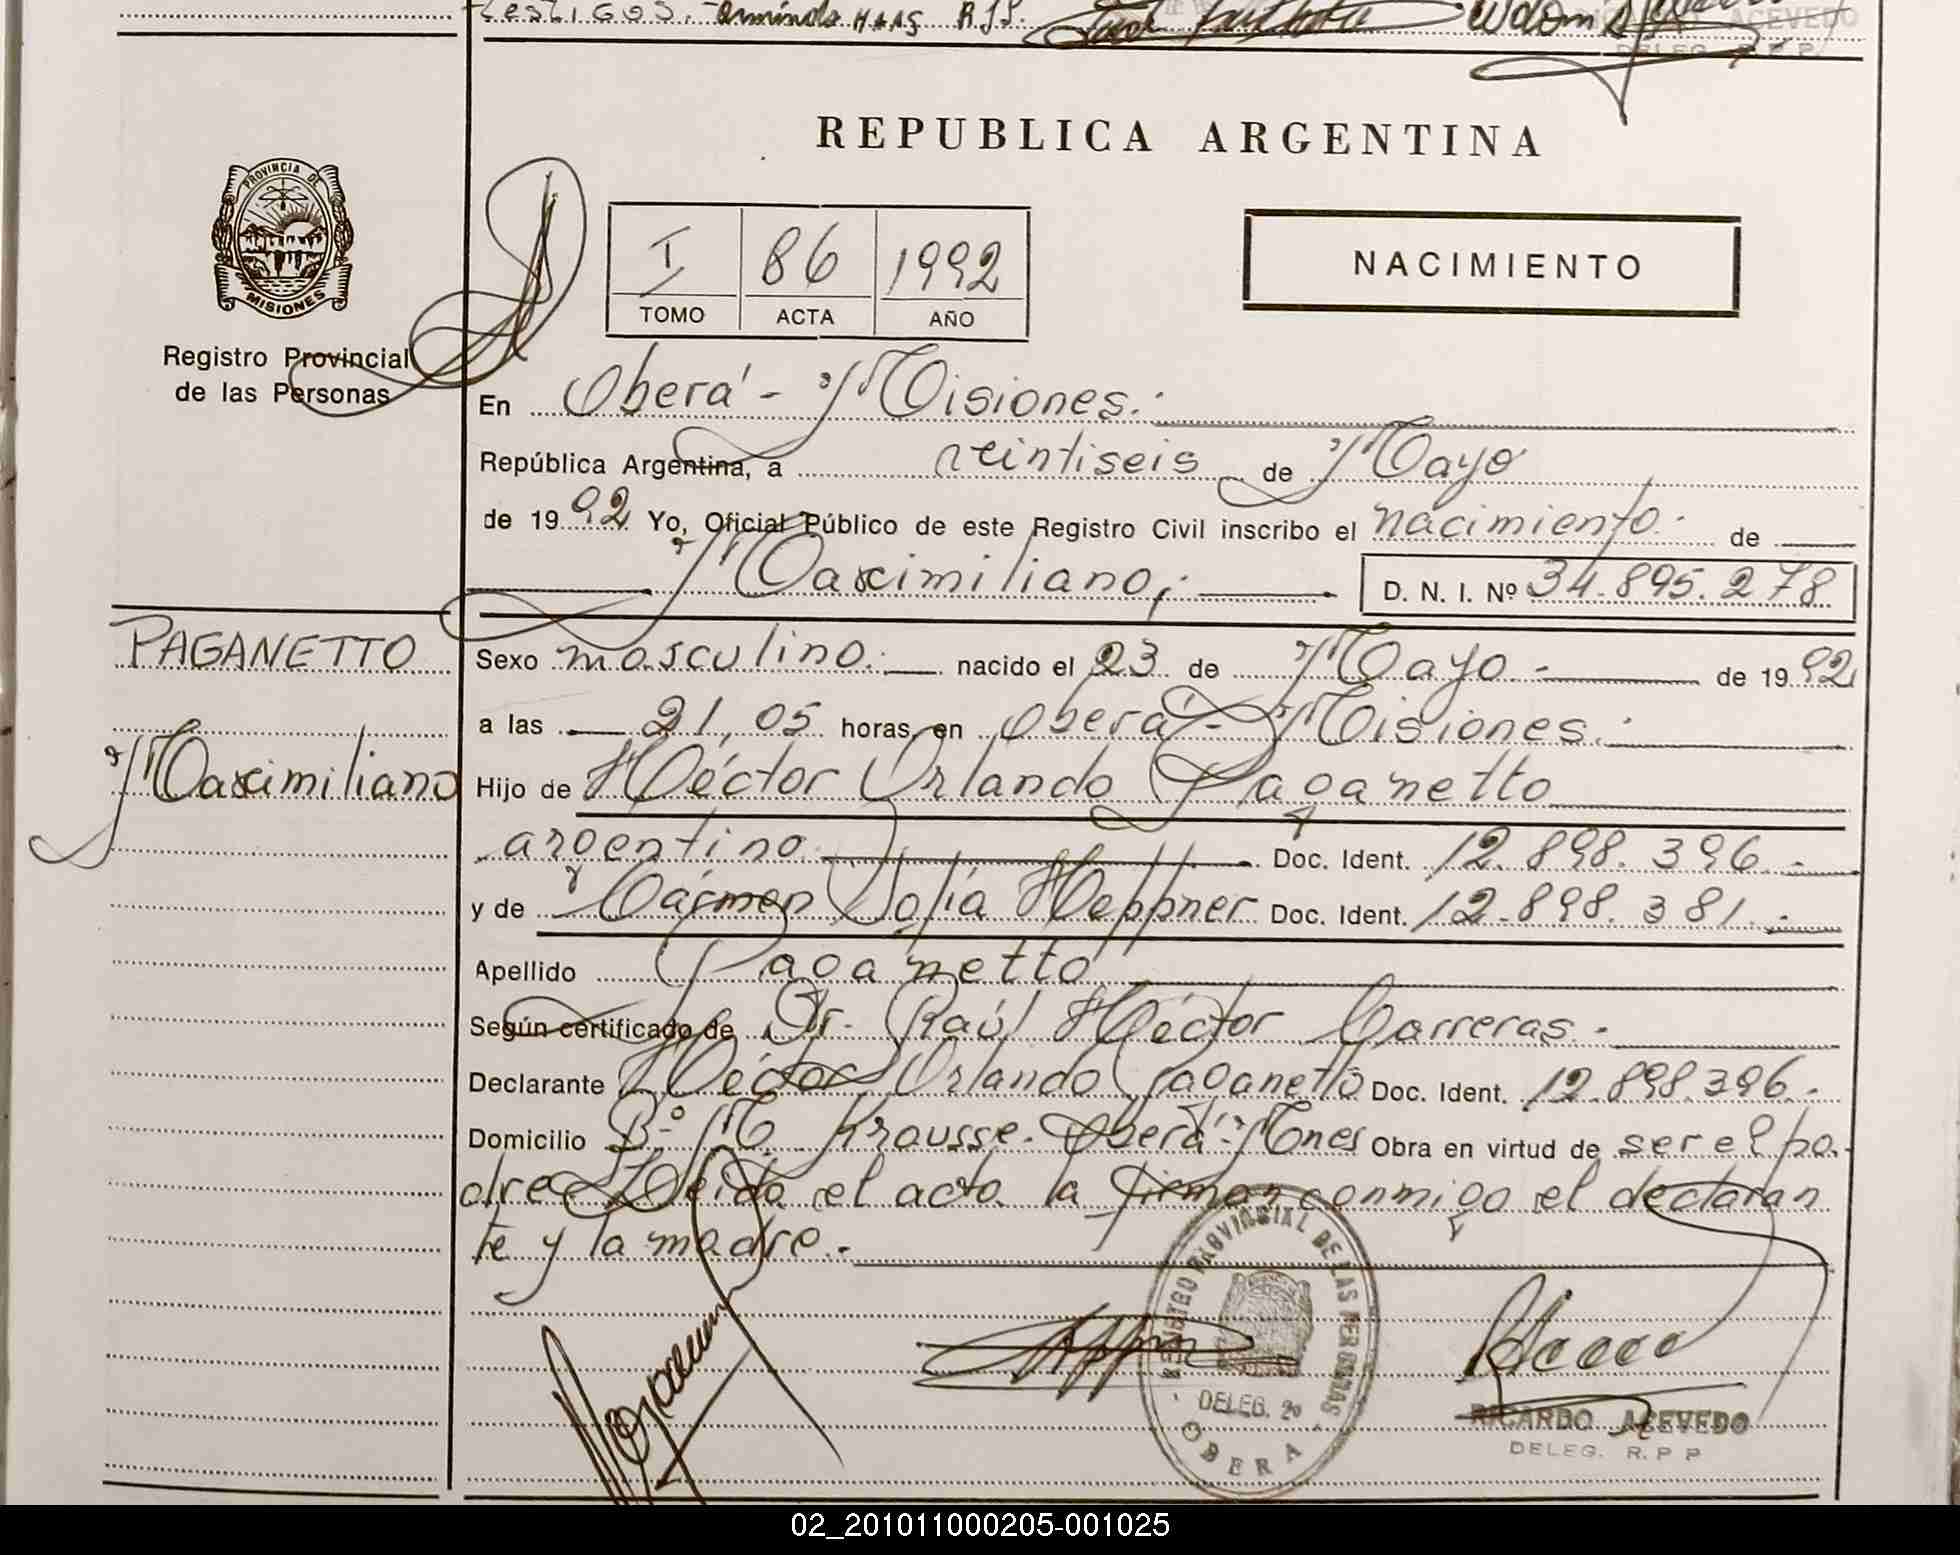 testigos. Arminda HAAS R.J.S.
RICARDO ACEVEDO
DELEG. R. P. P.
REPUBLICA ARGENTINA
PROVINCIA DE
MISIONES
Registro Provincial
de las Personas
I 86 1992
TOMO ACTA AÑO
NACIMIENTO
En Oberá - Misiones.
República Argentina, a veintiseis de Mayo
de 1992 Yo, Oficial Público de este Registro Civil inscribo el nacimiento. de
Maximiliano, D. N. I. Nº 34.895.278
PAGANETTO
Maximiliano
Sexo masculino. nacido el 23 de Mayo - de 1992
a las 21,05 horas, en Oberá - Misiones.
Hijo de Héctor Orlando Paganetto
argentino. Doc. Ident. 12.898.396.-
y de Cármen Sofía Heppner Doc. Ident. 12.898.381.-
Apellido Paganetto
Según certificado de Dr. Raúl Héctor Carreras.
Declarante Héctor Orlando Paganetto Doc. Ident. 12.898.396.
Domicilio Bº M. Krausse. Oberá - Mnes Obra en virtud de ser el pa-
dre Leída el acta la firman conmigo el declaran
te y la madre.-
REGISTRO PROVINCIAL DE LAS PERSONAS
DELEG. 2º
OBERA
RICARDO ACEVEDO
DELEG. R. P P
02_201011000205-001025